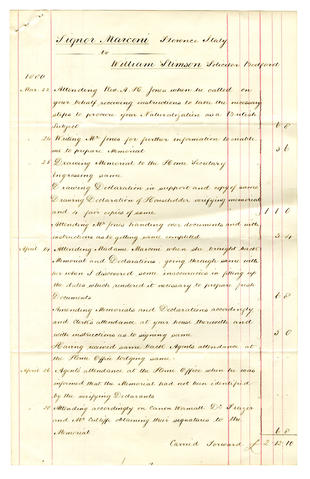 Signor Marconi Florence Italy
to
William Stimson Solicitor Bedford
Mar. 22 Attending Rev. A. H. Jones when he called on
your behalf receiving instructions to take the necessary
steps to procure your Naturalization as a British
Subject 6 8
24 Writing Mr Jones for further information to enable
us to prepare Memorial 3 6
28 Drawing Memorial to the Home Secretary
Engrossing same
Drawing Declaration in support and copy of same
Drawing Declaration of Householder verifying memorial
and 4 fair copies of same 1 1 0
Attending Mr Jones handing over documents and with
instructions as to getting same completed 3 4
April 14 Attending Madame Marconi when she brought back
Memorial and Declarations going through same with
her when I discovered some inaccuracies in filling up
the dates which rendered it necessary to prepare fresh
Documents 6 8
Amending Memorials and Declarations accordingly
and Clerk's attendance at your house therewith and
with instructions as to signing same 5 0
Having received same back Agents attendance at
the Home Office lodging same
April 26 Agents attendance at the Home Office when he was
informed that the Memorial had not been identified
by the verifying Declarants
30 Attending accordingly on Canon Warnall Dr Frazer
and Mr Cutliffe obtaining their signatures to the
Memorial 6 8
Carried Forward £ 2 12 10